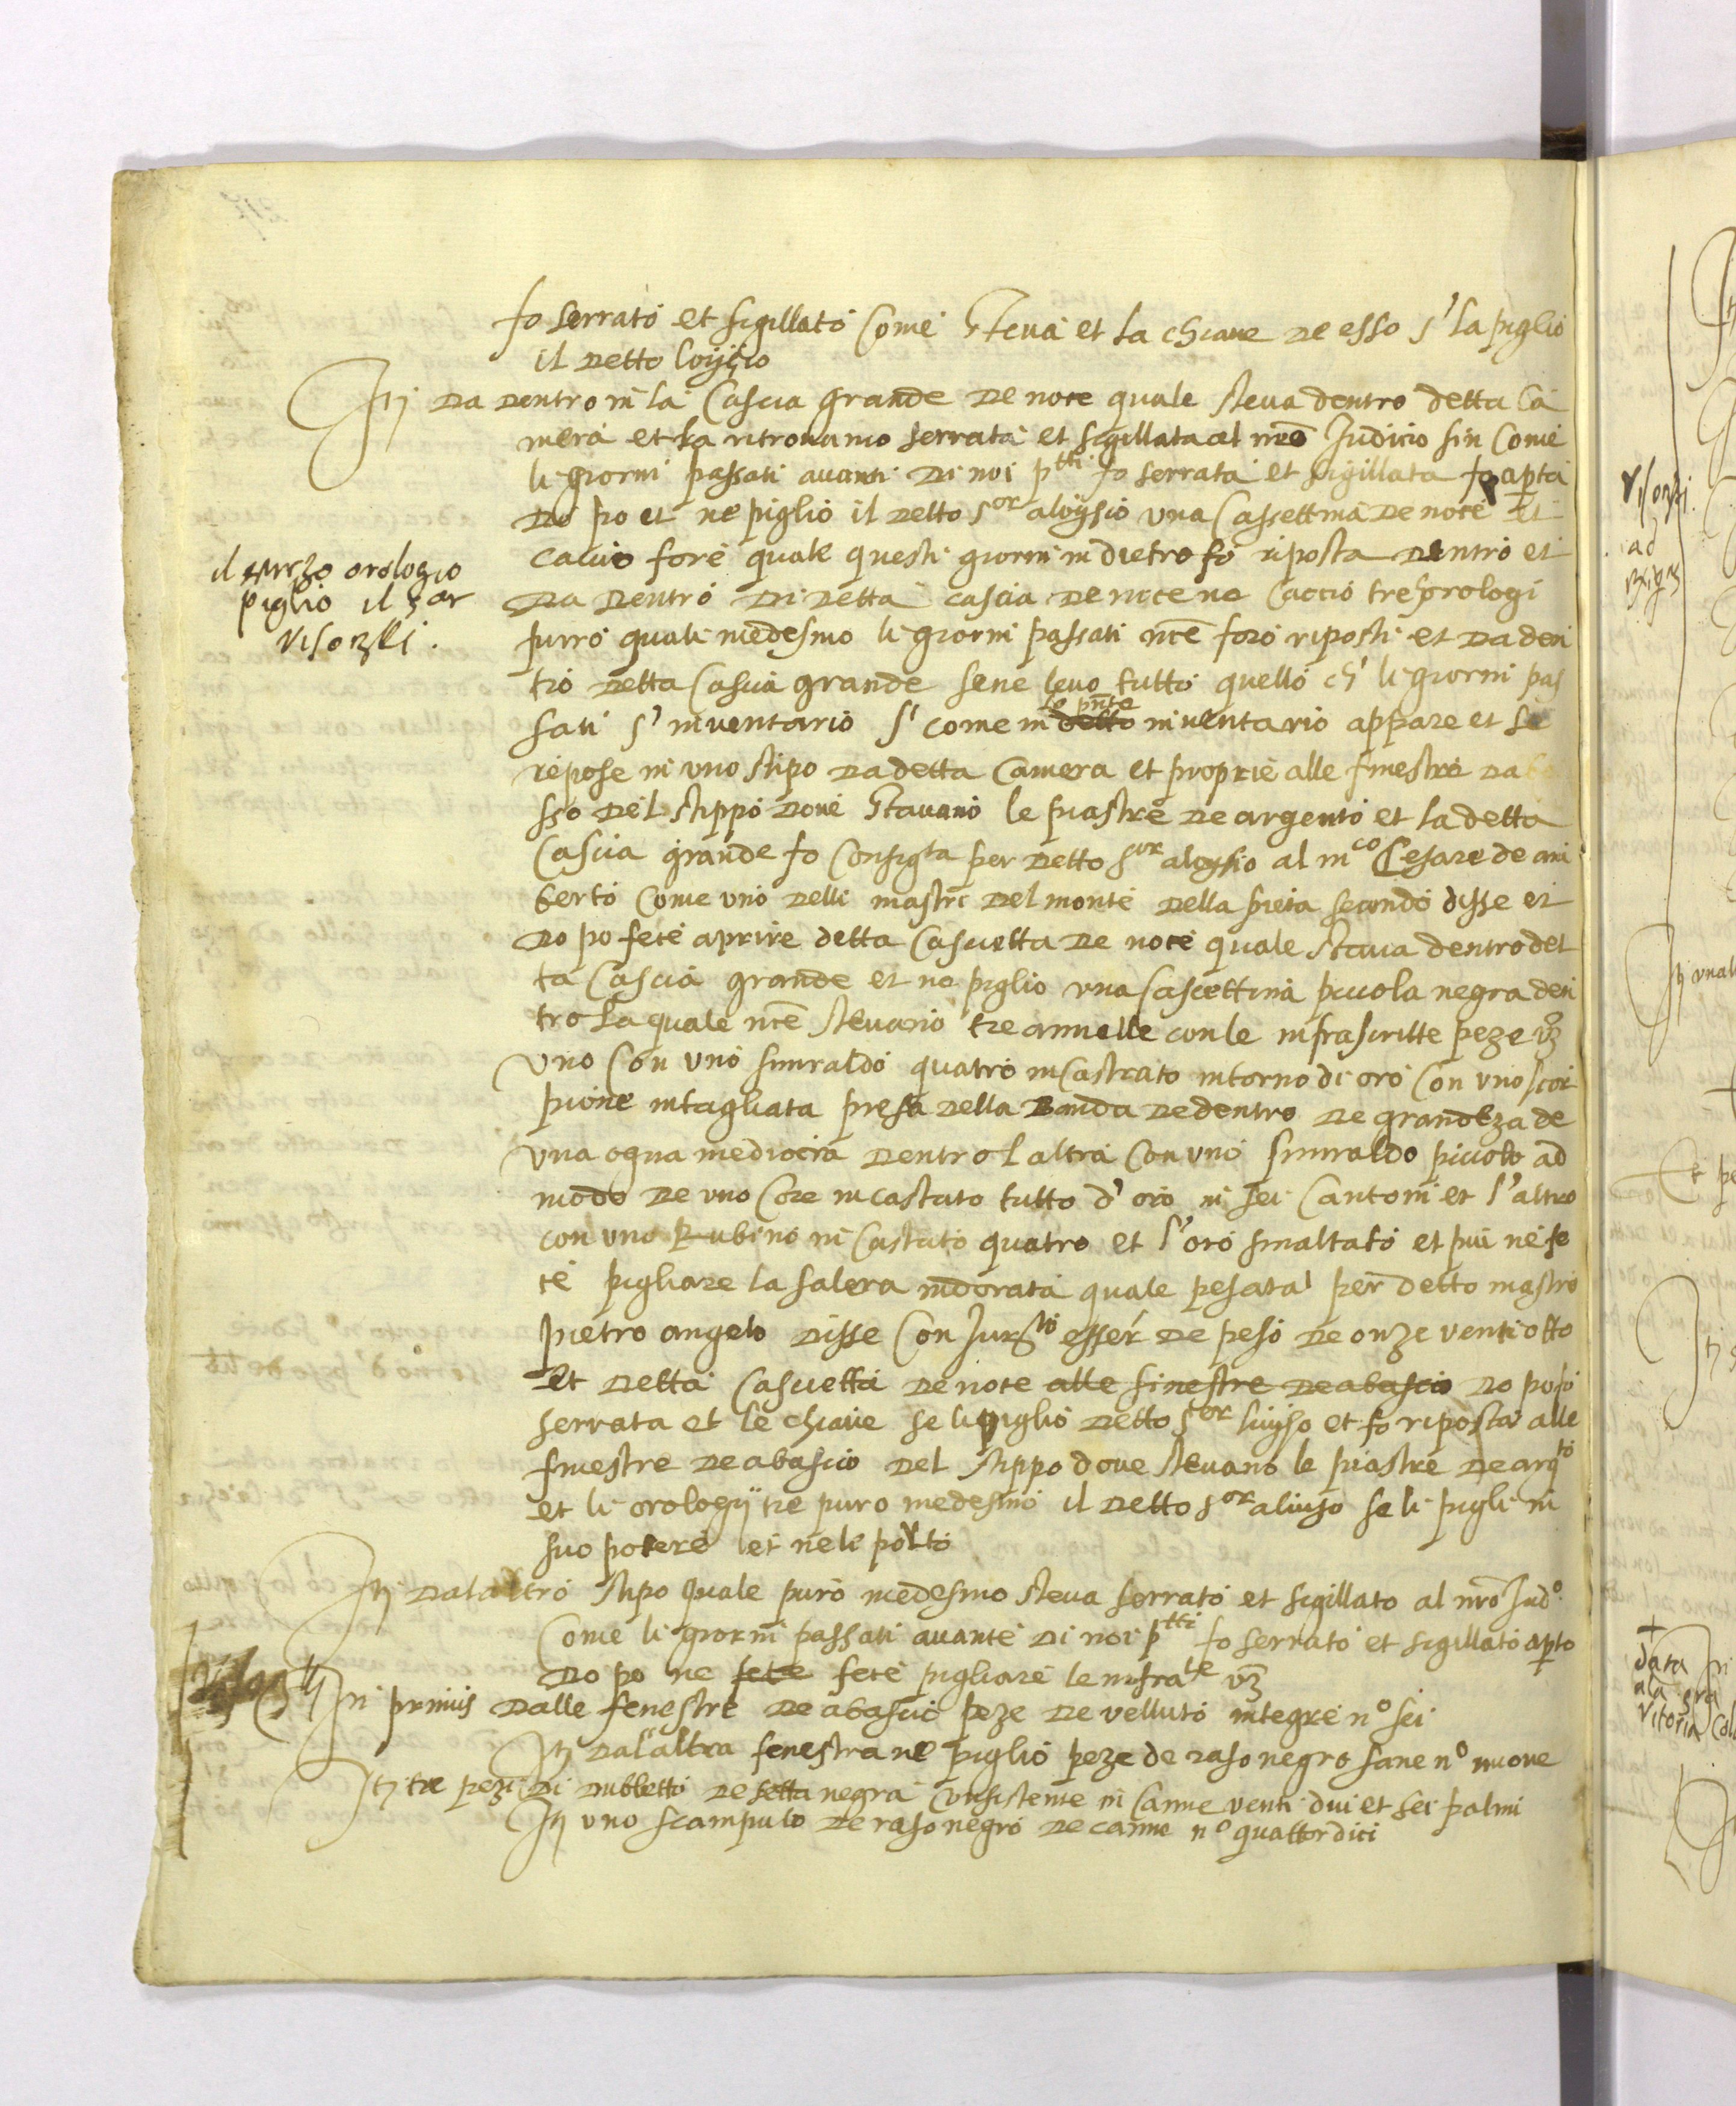 fo serrato et sigillato Come steva et la chiave de esso s' la piglio
il detto loyisio
Itj da dentro in la Cascia grande de noce quale steva dentro detta Ca
mera et la ritrovamo serrata et sigillata al nro Judicio sin Come
li giorni passati avanti di noi ptti fo serrata et sigillata fo apta
do po et ne piglio il detto sor aloysio una Cassettina de noce et
caccio fore quale questi giorni in dietro fo riposta dentro et
da dentro di detta cascia de noce ne Caccio tre orologi
purro quali medesmo li giorni passati nce foro riposti et da den
tro detta Cascia grande sene levo tutto quello ch' li giorni pas
sati s' inventario s' come in detto lo pnte inventario appare et se
repose in uno stipo da detta Camera et proprie alle finestre da ba
sso del stippo dove stavano le piastre de argento et la detta
Cascia grande fo Consigta per detto sor aloysio al mco Cesare de ari
berto Come uno delli mastri del monte della pieta secondo disse et
do po fece aprire detta Cascietta de noce quale stava dentro det
ta Cascia grande et ne piglio una Cascettina piccola negra den
tro la quale nce stevano tre annelle con le infrascritte peze vz
uno Con uno smiraldo quatro incastrato intorno di oro Con uno scor
pione intagliata presa della Banda de dentro de grandeza de
una ogna mediocra dentro l altra Con uno smiraldo piccolo ad
modo de uno Core incastato tutto d' oro in sei Cantoni et l'altro
con uno Rubino in Castato quatro et l'oro smaltato et piu ne fe
ce pigliare la salera indorata quale pesata per detto mastro
pietro angelo disse Con Jurto esser de peso de onze venti otto
et detta Cascietta de noce alle finestre de abascio do po fo
serrata et le chiave se li piglio detto sor luyso et fo riposta alle
finestre de abascio del stippo dove stevano le piastre de argto
et li orologij tre puro medesmo il detto sor aluiso se li piglio in
suo potere et ne le porto
Itj dal altro stipo quale puro medesmo steva serrato et sigillato al nro Judo
Come li giorni passati avante di noi ptti fo serrato et sigillato apto
do po ne fece fece pigliare le infrate vz
In primis dalle fenestre de abascio peze de velluto integre no sei
Itj dal altra fenestra ne piglio peze de raso negro sane no nuove
Itj tre pezi di dubbletto de setta negra Consistente in Canne venti dui et sei palmi
Itj uno scampulo de raso negro de canne no quattordici
il terzo orologio
piglio il sor
visorzhi.